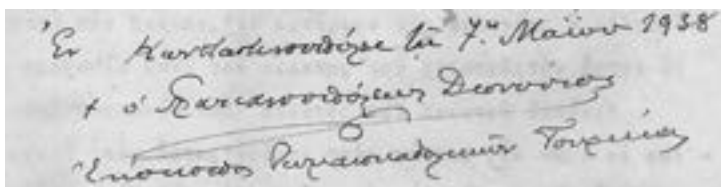 Ἐν Κωνσταντινουπόλει τῇ 7ῃ Μαΐου 1938
† ὁ Γρατιανουπόλεως Διονύσιος
Ἐπίσκοπος Ῥωμαιοκαθολικῶν Τουρκίας